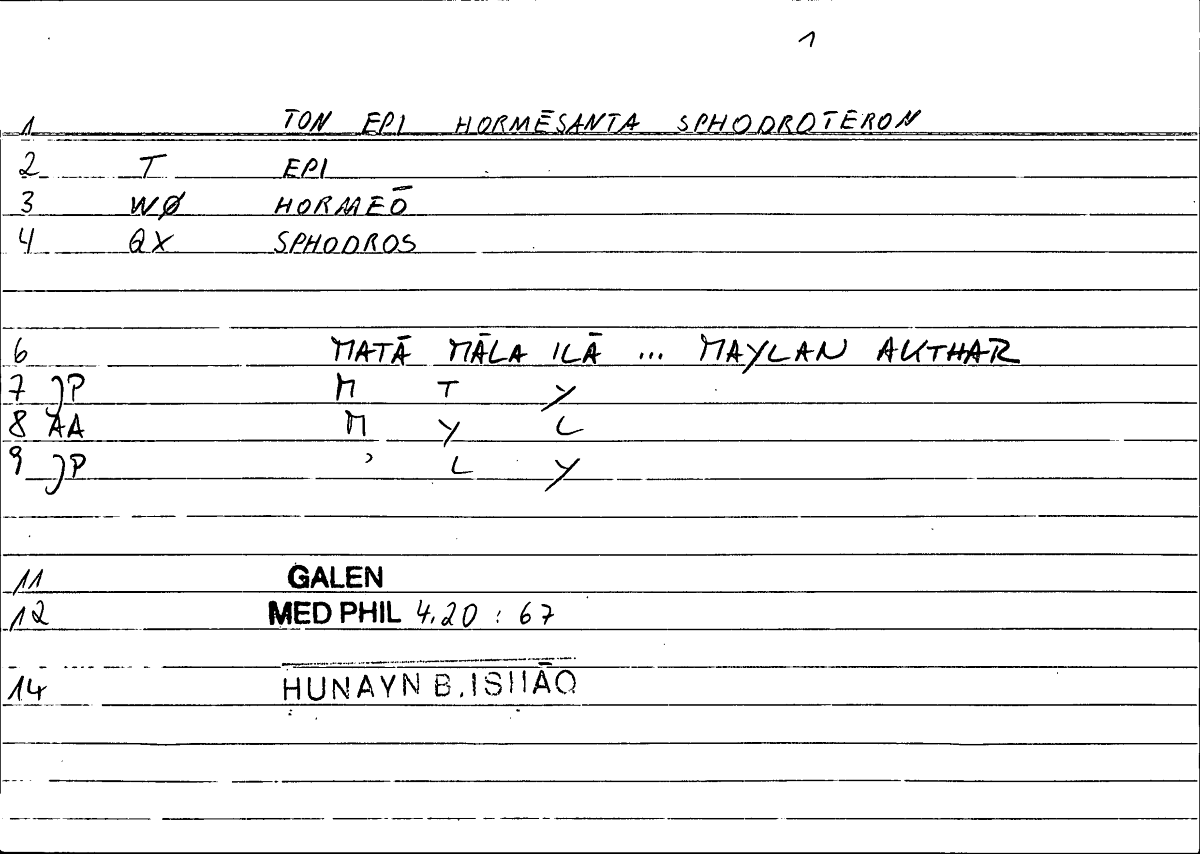 1
1 TON EPI HORMĒSANTA SPHODROTERON
2 T EPI
3 WØ HORMEŌ
4 QX SPHODROS
6 MATĀ MĀLA ILĀ ... MAYLAN AKTHAR
7 JP M T Y
8 AA M Y L
9 JP ʾ L Y
11 GALEN
12 MED PHIL 4.20 : 67
14 HUNAYN B. ISḤĀQ